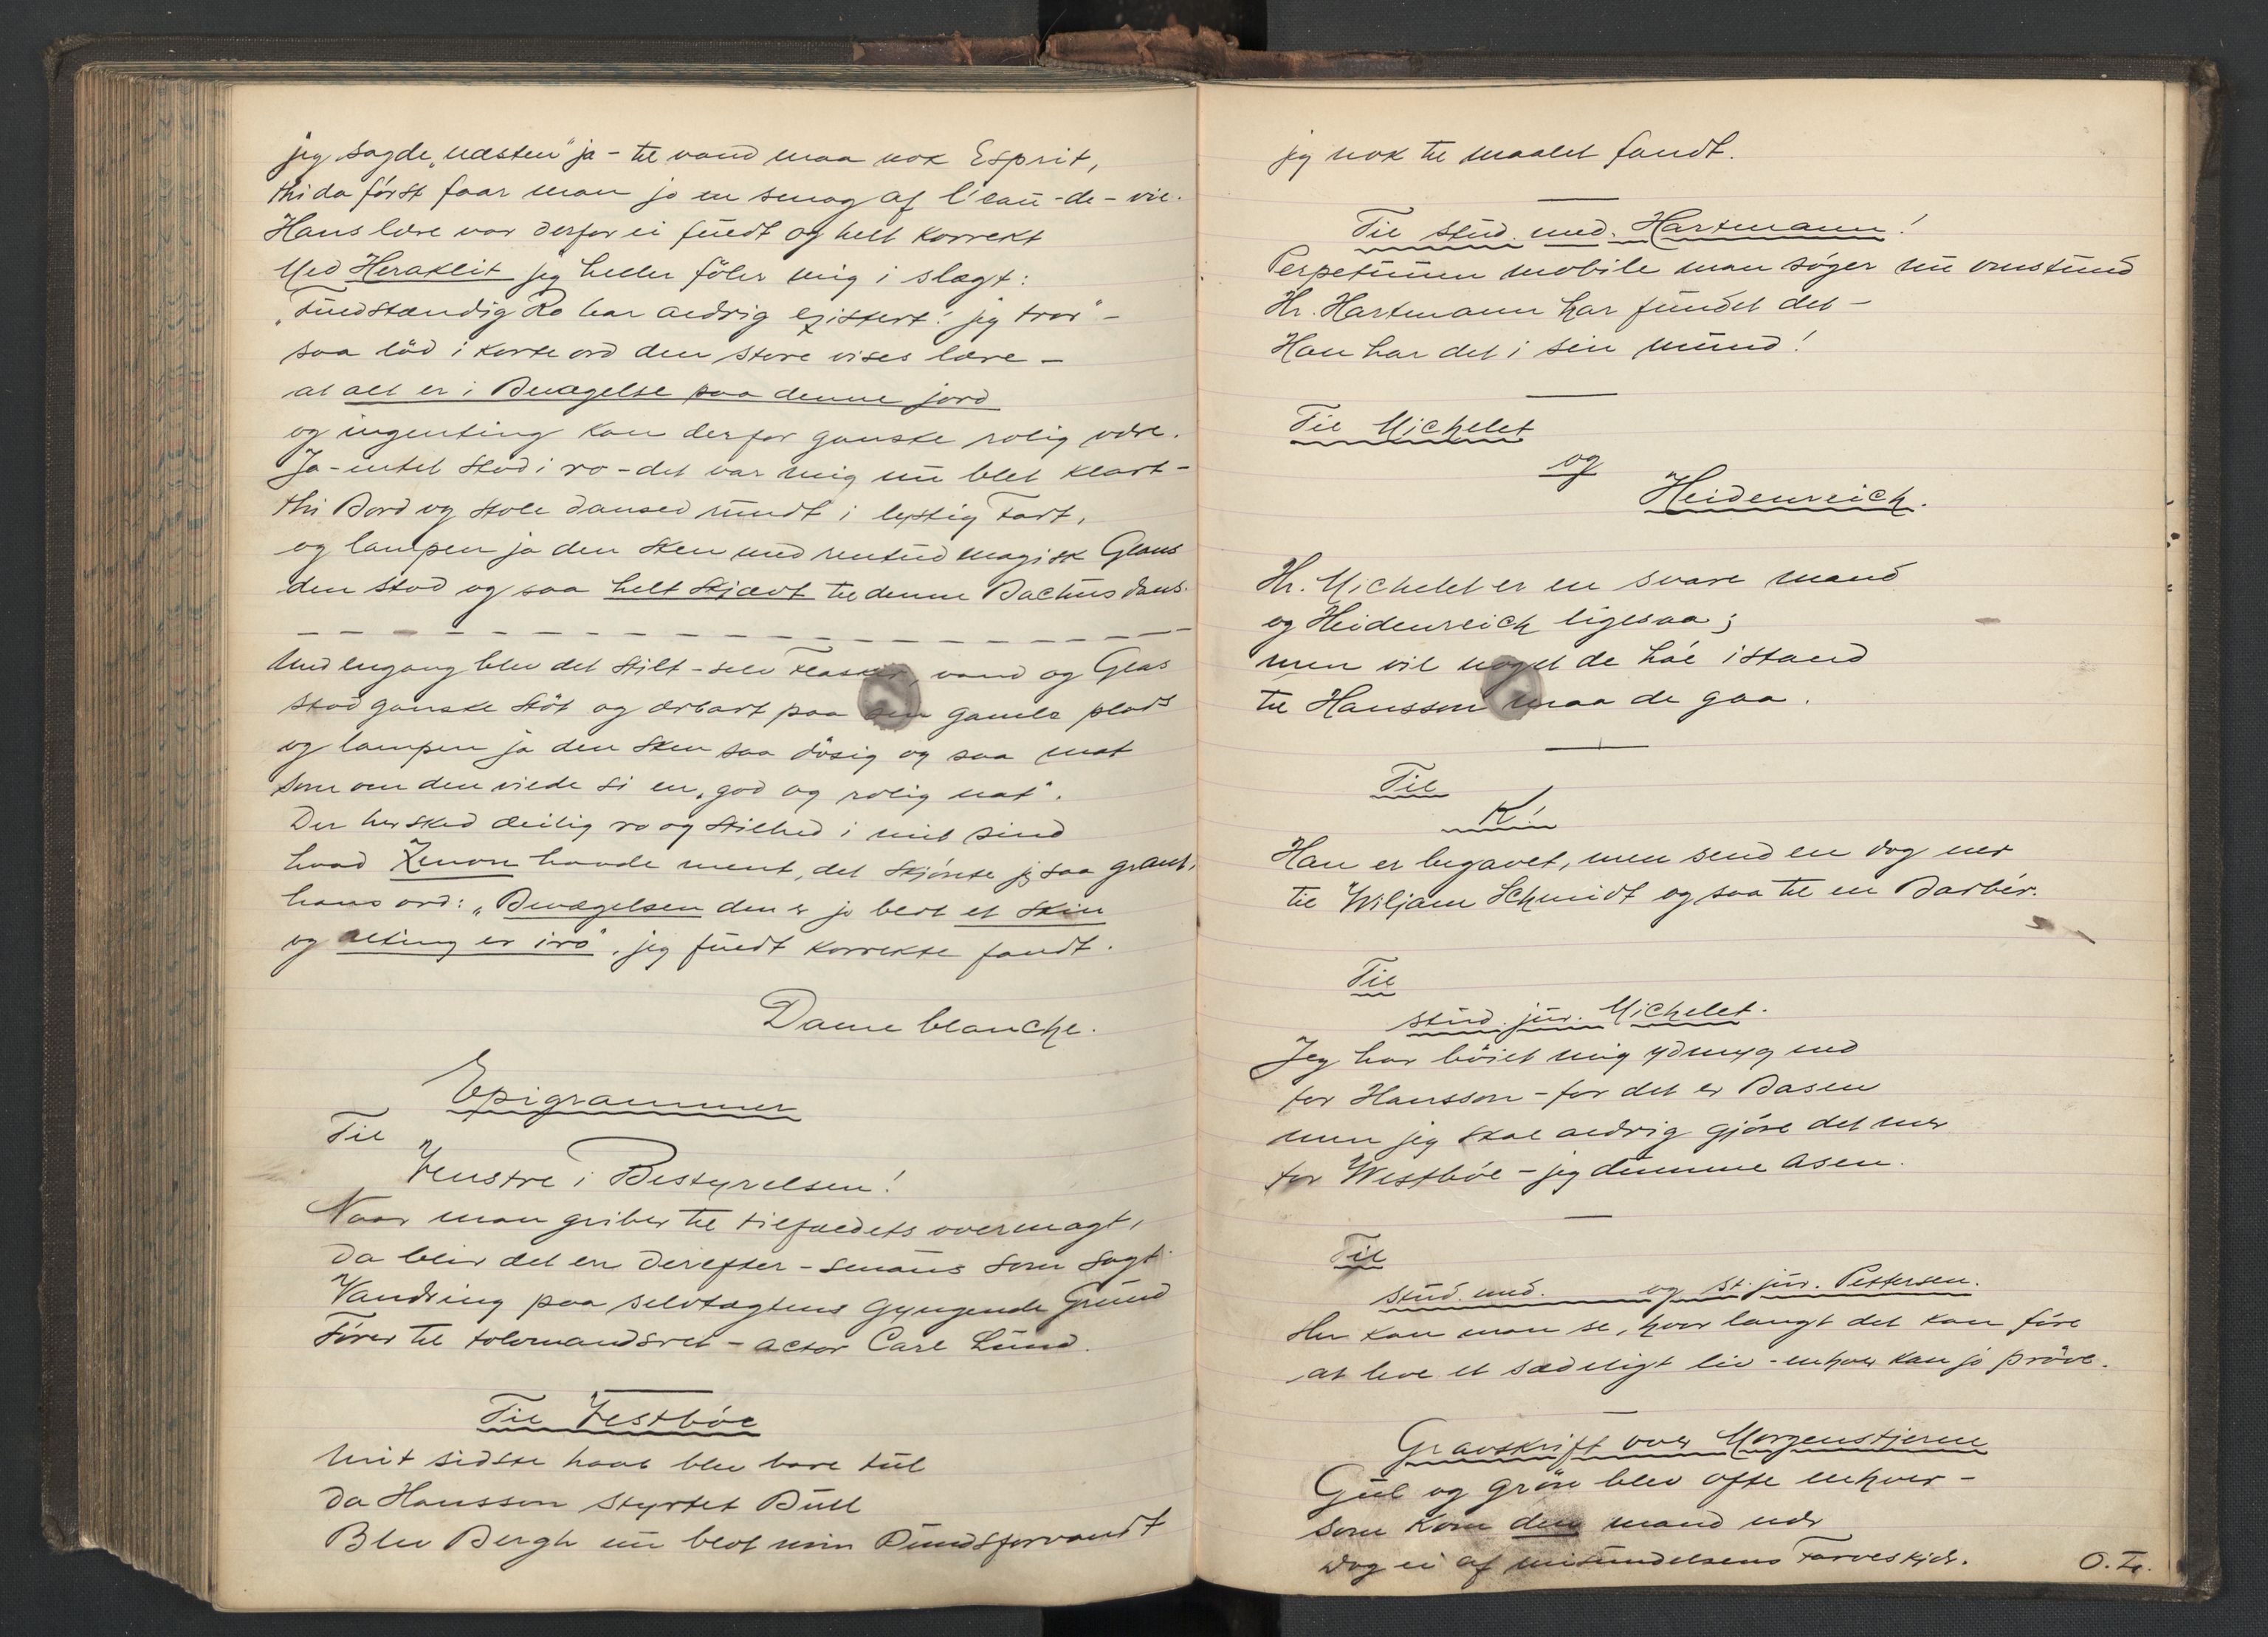 jeg sagde „næsten" ja - til vand maa nok Esprit,
thi da først faar man jo en smag af l'eau-de-vie.
Hans lære var derfor ei fuldt og helt korrekt
Med Heraklit jeg heller føler mig i slægt:
„Fuldstændig Ro har aldrig existert! jeg tror" -
saa lød i korte ord den store vises lære -
at alt er i Bevægelse paa denne jord
og ingenting kan derfor ganske rolig være.
Ja - intet stod i ro - det var mig nu blet klart -
thi Bord og stole dansed rundt i lystig Fart,
og lampen ja den sken med rentud magisk Glans
den stod og saa helt skjævt til denne Bachus dans.
Med engang blev det stilt - selv Flasker, vand og Glas
stod ganske støt og ærbart paa sin gamle plads
og lampen ja den sken saa døsig og saa mat
som om den vilde si en „god og rolig nat".
Der hersked deilig ro og stilhed i mit sind
hvad Zenon havde ment, det skjønte jeg saa grant,
hans ord: „Bevægelsen den er jo blot et skin
og alting er i ro", jeg fuldt korrekte fandt.
Dame blanche.
Epigrammer
Til
Venstre i Bestyrelsen!
Naar man griber til tilfældets overmagt,
da blir det en derefter - smaus som sagt
Vandring paa selvtægtens gyngende Grund
Fører til tolvmandsret - actor Carl Lund.
Til Vestbøe
Mit sidste haab blev bare tul
da Hansson styrtet Bull
Blev Bergh nu blot min Bundsforvandt
jeg nok til maalet fandt.
Til stud. med. Hartmann!
Perpetuum mobile man søger nu omstund
Hr. Hartmann har fundet det -
Han har det i sin mund!
Til Michelet
og
Heidenreich.
Hr. Michelet er en svare mand
og Heidenreich ligesaa;
men vil noget de ha'e istand
til Hansson maa de gaa.
Til
K!
Han er begavet, men send en dog ner
til Wiljam Schmidt og saa til en Barbér.
Til
stud. jur. Michelet.
Jeg har bøiet mig ydmyg ned
for Hansson - for det er Basen
men jeg skal aldrig gjøre det mer
for Westbøe - jeg dumme Asen.
Til
stud. med. og st. jur. Pettersen.
Her kan man se, hvor langt det kan føre
at leve et sædeligt liv - enhver kan jo prøve.
Gravskrift over Morgenstjerne
Gul og grøn blev ofte enhver -
som kom den mand nær
Dog ei af misundelsens Farveskjær.
O. L.